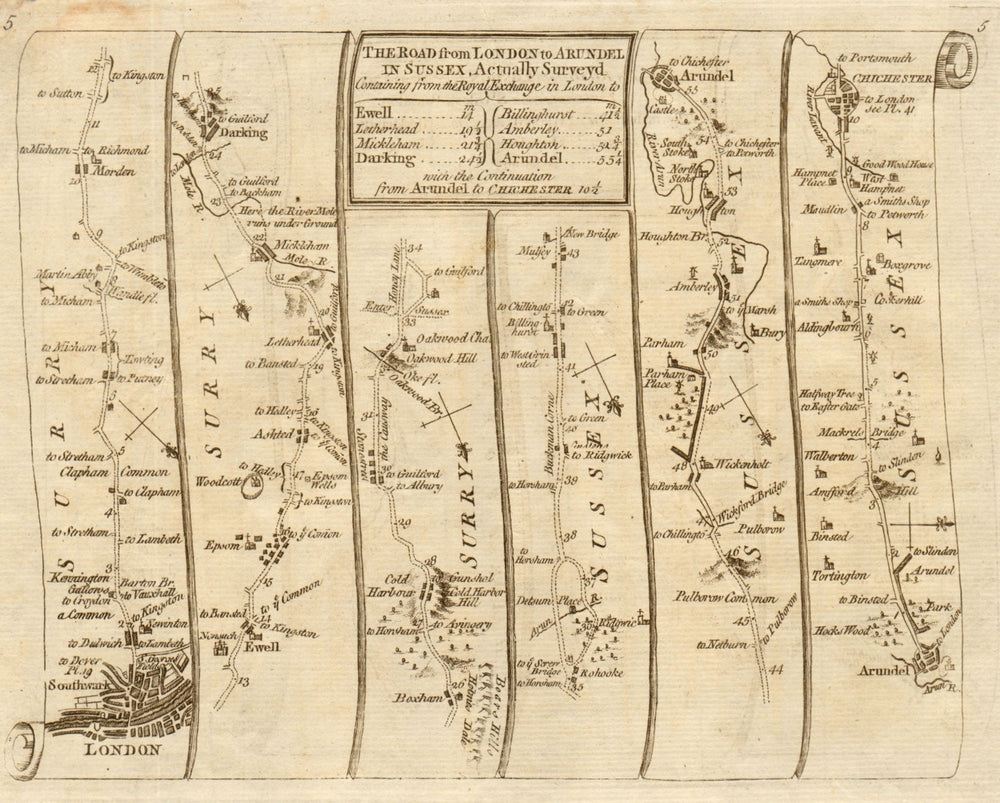 5
5
THE ROAD from LONDON to ARUNDEL
IN SUSSEX, Actually Survey'd
Containing from the Royal Exchange in London to
m
m
Ewell 14
Letherhead 19½
Mickleham 21¾
Darking 24½
Billinghurst 41¼
Amberley 51
Houghton 52¾
Arundel 55¼
with the Continuation
from Arundel to CHICHESTER 10¼
12
to Kingston
to Sutton
11
to Micham
to Richmond
Morden
10
9
to Kingston
to Wimbleto
Martin Abby
Wandle fl.
to Micham
7
to Micham
Towting
to Stretham
to Putney
6
5
to Stretham
Clapham Common
to Clapham
4
to Stretham
to Lambeth
3
Kennington
Gallows
Barton Br.
to Vauxhall
to Croydon
a Common
to Kingston
2
Newinton
to Dulwich
to Lambeth
to Dover
Pl. 19
St. Georges
Fields
Southwark
LONDON
SURRY
to Guilford
Darking
24
Mole R
to Guilford
to Backham
23
Here the River Mole
runs under Ground
22
Mickleham
Mole R
21
20
to Guilford
Letherhead
to Kingston
to Bansted
19
to Hedley
18
Ashted
to Hedley
17
Epsom
Wells
Woodcott
to Kingston
to ye Comon
Epsom
15
to Bansted
to ye Common
14
to Kingston
Nonsuch
Ewell
13
SURRY
34
Honey Lane
to Guilford
Enter Sussex
33
Oakwood Cha.
Oakwood Hill
Oke fl.
Oakwood Br
31
Stonestreet
the Causway
30
to Guilford
to Albury
29
28
Cold
Harbour
Gunshot
Cold Harbor
Hill
to Horsham
to Avingery
Boxham
26
Holmes Dale
Boars Hills
SURRY
New Bridge
Mulsey
43
to Chillington
42
to Green
Billing
hurst
to West Grin
sted
41
Buckman Corne
to Green
40
to Ridgwick
to Horsham
39
38
to Horsham
37
Detsum Place
Arun R
36
Ridgwic
to ye Screw
Bridge
to Horsham
Rohooke
35
SUSSEX
to Chichester
Arundel
55
Castle
River Arun
South
Stoke
54
to Chichester
to Petworth
North
Stoke
53
Houghton
Houghton Br
52
Amberley
51
to ye Marsh
Bury
Parham
50
Parham
Place
49
48
Wickenholt
to Parham
Wickford Bridge
47
to Chillington
Pulborow
46
Pulborow Common
45
to Pulborow
to Netburn
44
SUSSEX
to Portsmouth
CHICHESTER
to London
see Pl. 41
River Lavant
10
Good Wood House
Hampnet
Place
West
Hampnet
a Smiths Shop
Maudlin
to Petworth
8
Tangmere
Boxgrove
7
a Smiths Shop
Cockerhill
Aldingbourn
6
5
Halfway Tree
to Easter Gate
Mackrels Bridge
4
Walberton
to Slinden
Amsford Hill
3
Binsted
2
to Slinden
Tortington
Arundel
Park
to Binsted
1
Hocks Wood
to London
Arundel
Arun R
SUSSEX